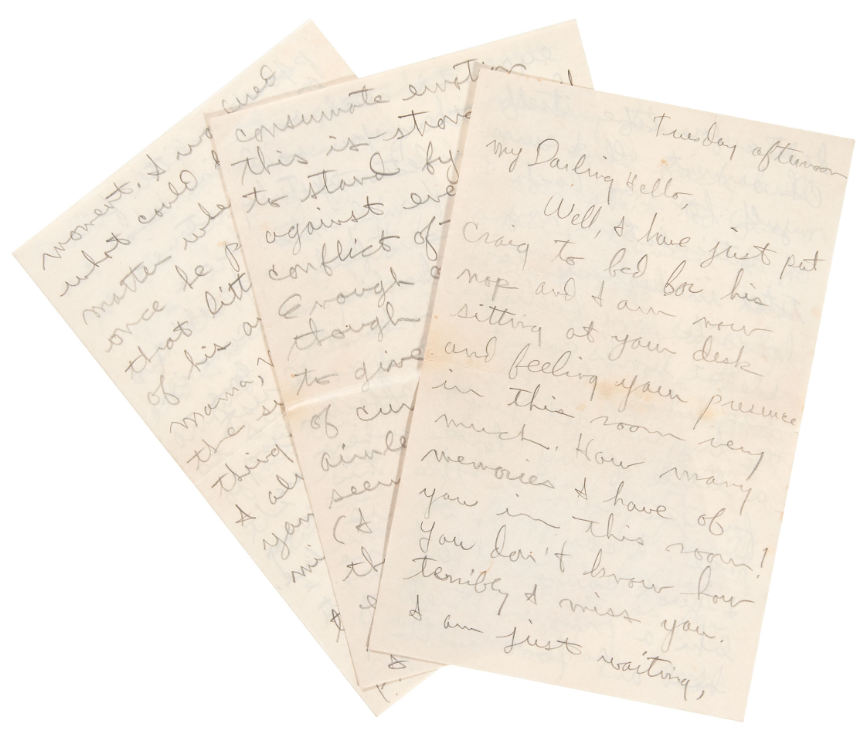 Tuesday afternoon
My Darling Hello,
Well, I have just put
Craig to bed for his
nap and I am now
sitting at your desk
and feeling your presence
in this room very
much. How many
memories I have of
you in this room!
You don't know how
terribly I miss you.
I am just waiting,
consumate emotion
this is - strong
to stand by
against eve
conflict of
Enough
though
to give
of cur
aimle
seem
(I
th
moment. I wo
what could
matter whe
once he p
that litt
of his a
mama,
the s
thing
I al
you
mi